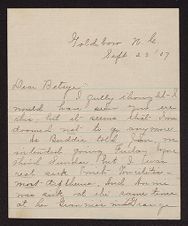 Goldsboro N. C.
Sept 23 '07
Dear Betsye:
I fully thought I
would have seen you ere
this, but it seems that I'm
doomed not to go any more.
As Buddie told you, we
intended going Friday
third Sunday but I was
real sick with
most and Annie
was sick at the same time
at her Gran'ma's